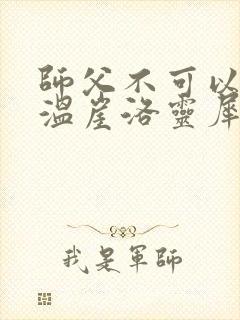 師父不可以
溫崖洛靈犀
我是軍師